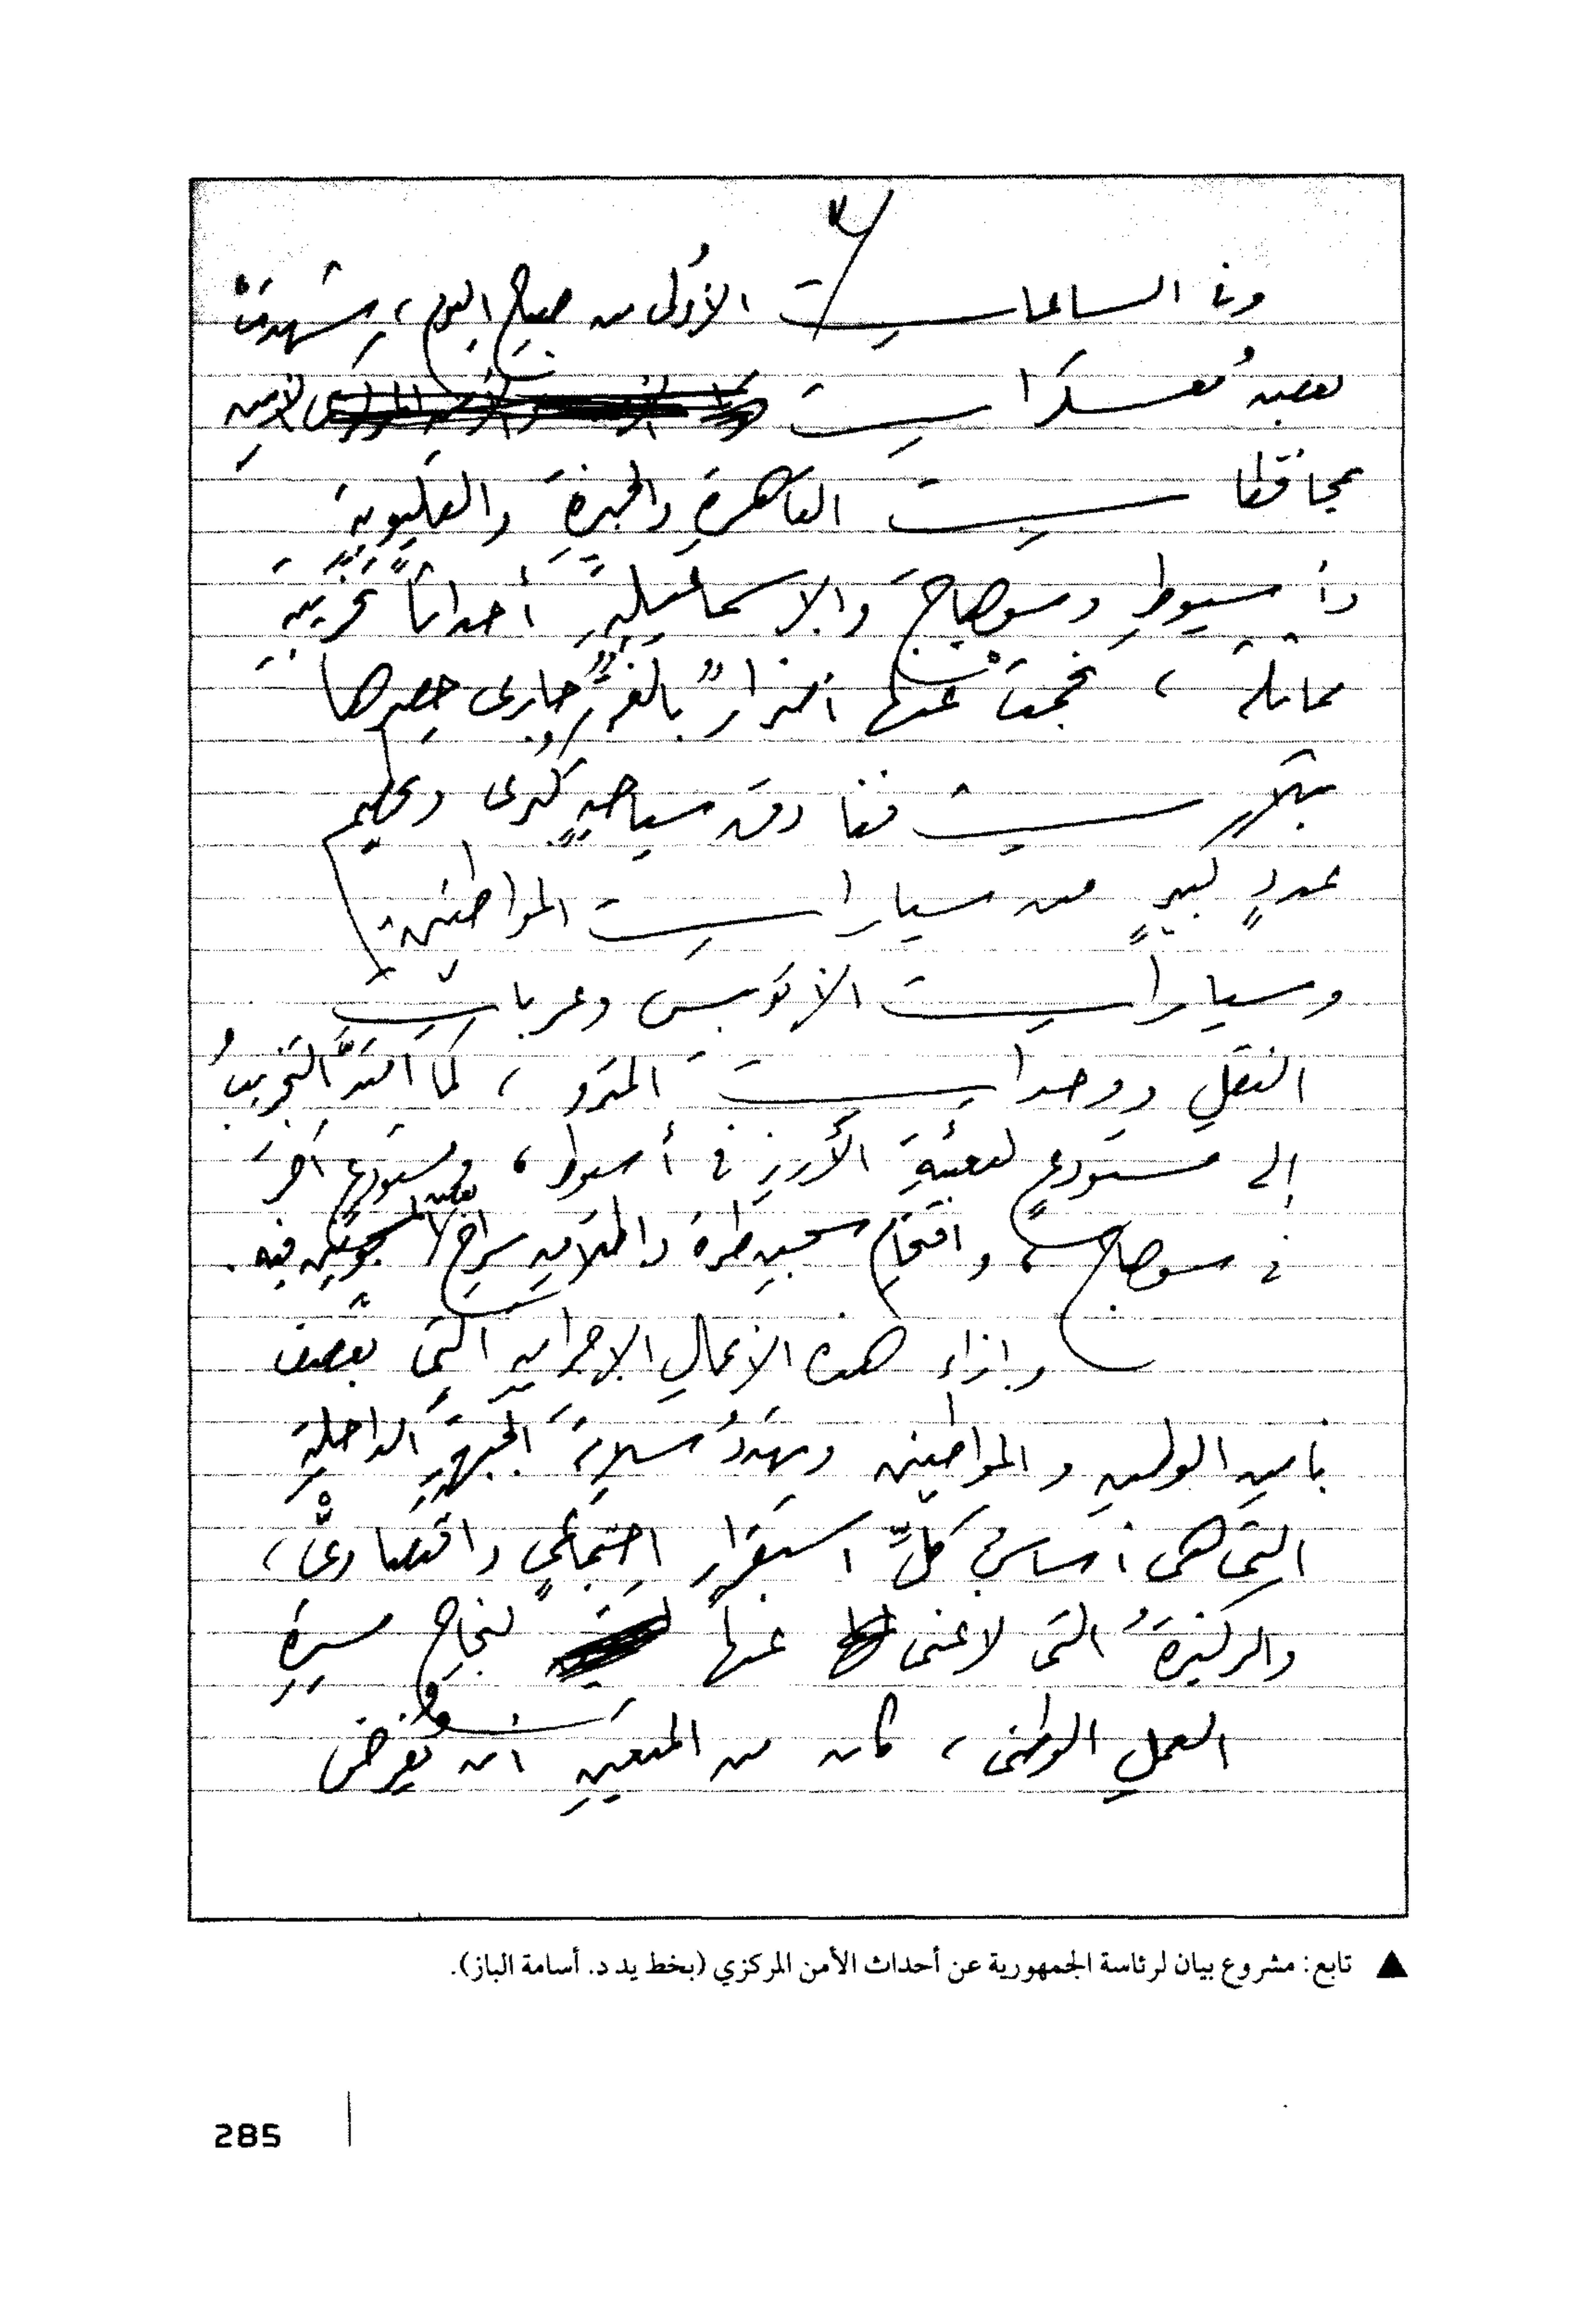 ٣
وفى الساعات الأولى من صباح اليوم، شهدت
بعض معسكرات الأمن
بمحافظات القاهرة والجيزة والقليوبية
وأسيوط وسوهاج والإسماعيلية أحداثاً تخريبية
مماثلة، نجمت عنها أضرار بالغة جارى حصرها
بثلاث فنادق سياحية كبرى وتحطيم
عددٍ كبيرٍ من سيارات المواطنين
وسيارات الأتوبيس وعربات
النقل ووحدات المترو، كما امتدَّ التخريبُ
إلى مستودعٍ لتعبئة الأرز فى أسيوط، ومستودع آخر
فى سوهاج، واقتحام سجن طره واطلاق سراح بعض المسجونين فيه.
وإزاء هذه الأعمال الإجرامية التى تعصف
بأمن الوطن والمواطنين وتهددُ سلامة الجبهة الداخلية
التى هى أساس كلِّ استقرارٍ اجتماعىٍ واقتصادىٍّ،
والركيزةُ التى لا غنى عنها لنجاح مسيرة
العمل الوطنى، كان من المتعين أن يُفرض
▲ تابع: مشروع بيان لرئاسة الجمهورية عن أحداث الأمن المركزي (بخط يد د. أسامة الباز).
285